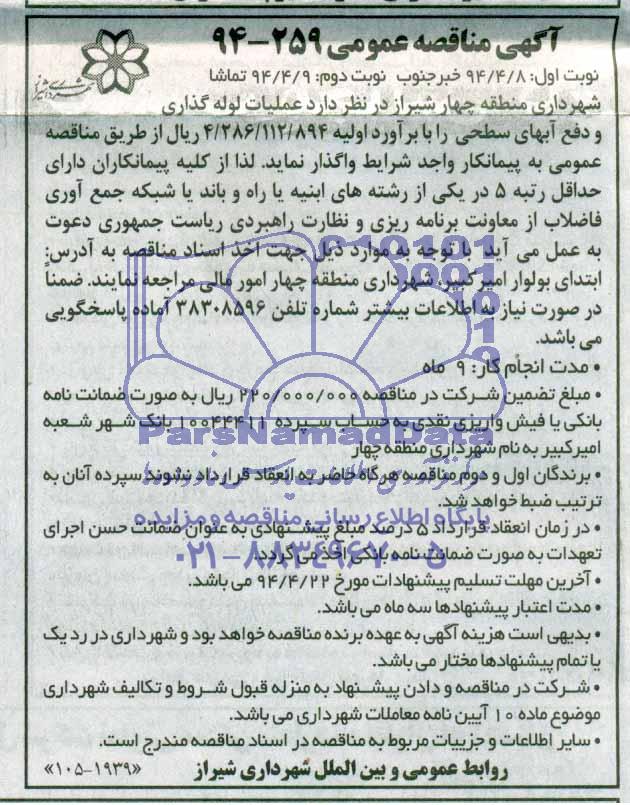 آگهی مناقصه عمومی ۲۵۹-۹۴
نوبت اول: ۹۴/۴/۸ خبرجنوب نوبت دوم: ۹۴/۴/۹ تماشا
شهرداری منطقه چهار شیراز در نظر دارد عملیات لوله گذاری
و دفع آبهای سطحی را با برآورد اولیه ۴/۲۸۶/۱۱۲/۸۹۴ ریال از طریق مناقصه
عمومی به پیمانکار واجد شرایط واگذار نماید. لذا از کلیه پیمانکاران دارای
حداقل رتبه ۵ در یکی از رشته های ابنیه یا راه و باند یا شبکه جمع آوری
فاضلاب از معاونت برنامه ریزی و نظارت راهبردی ریاست جمهوری دعوت
به عمل می آید با توجه به موارد ذیل جهت اخذ اسناد مناقصه به آدرس:
ابتدای بولوار امیرکبیر، شهرداری منطقه چهار امور مالی مراجعه نمایند. ضمناً
در صورت نیاز به اطلاعات بیشتر شماره تلفن ۳۸۳۰۸۵۹۶ آماده پاسخگویی
می باشد.
• مدت انجام کار: ۹ ماه
• مبلغ تضمین شرکت در مناقصه ۲۲۰/۰۰۰/۰۰۰ ریال به صورت ضمانت نامه
بانکی یا فیش واریزی نقدی به حساب سپرده ۱۰۰۴۴۴۱۱ بانک شهر شعبه
امیرکبیر به نام شهرداری منطقه چهار
ParsNamadData
• برندگان اول و دوم مناقصه هرگاه حاضر به انعقاد قرارداد نشوند سپرده آنان به
ترتیب ضبط خواهد شد.
پایگاه اطلاع رسانی مناقصه و مزایده
• در زمان انعقاد قرارداد ۵ درصد مبلغ پیشنهادی به عنوان ضمانت حسن اجرای
تعهدات به صورت ضمانت نامه بانکی اخذ می گردد.
۰۲۱-۸۸۳۴۹۶۷۰-۵
• آخرین مهلت تسلیم پیشنهادات مورخ ۹۴/۴/۲۲ می باشد.
• مدت اعتبار پیشنهادها سه ماه می باشد.
• بدیهی است هزینه آگهی به عهده برنده مناقصه خواهد بود و شهرداری در رد یک
یا تمام پیشنهادها مختار می باشد.
• شرکت در مناقصه و دادن پیشنهاد به منزله قبول شروط و تکالیف شهرداری
موضوع ماده ۱۰ آیین نامه معاملات شهرداری می باشد.
• سایر اطلاعات و جزییات مربوط به مناقصه در اسناد مناقصه مندرج است.
روابط عمومی و بین الملل شهرداری شیراز
«۱۰۵-۱۹۳۹»